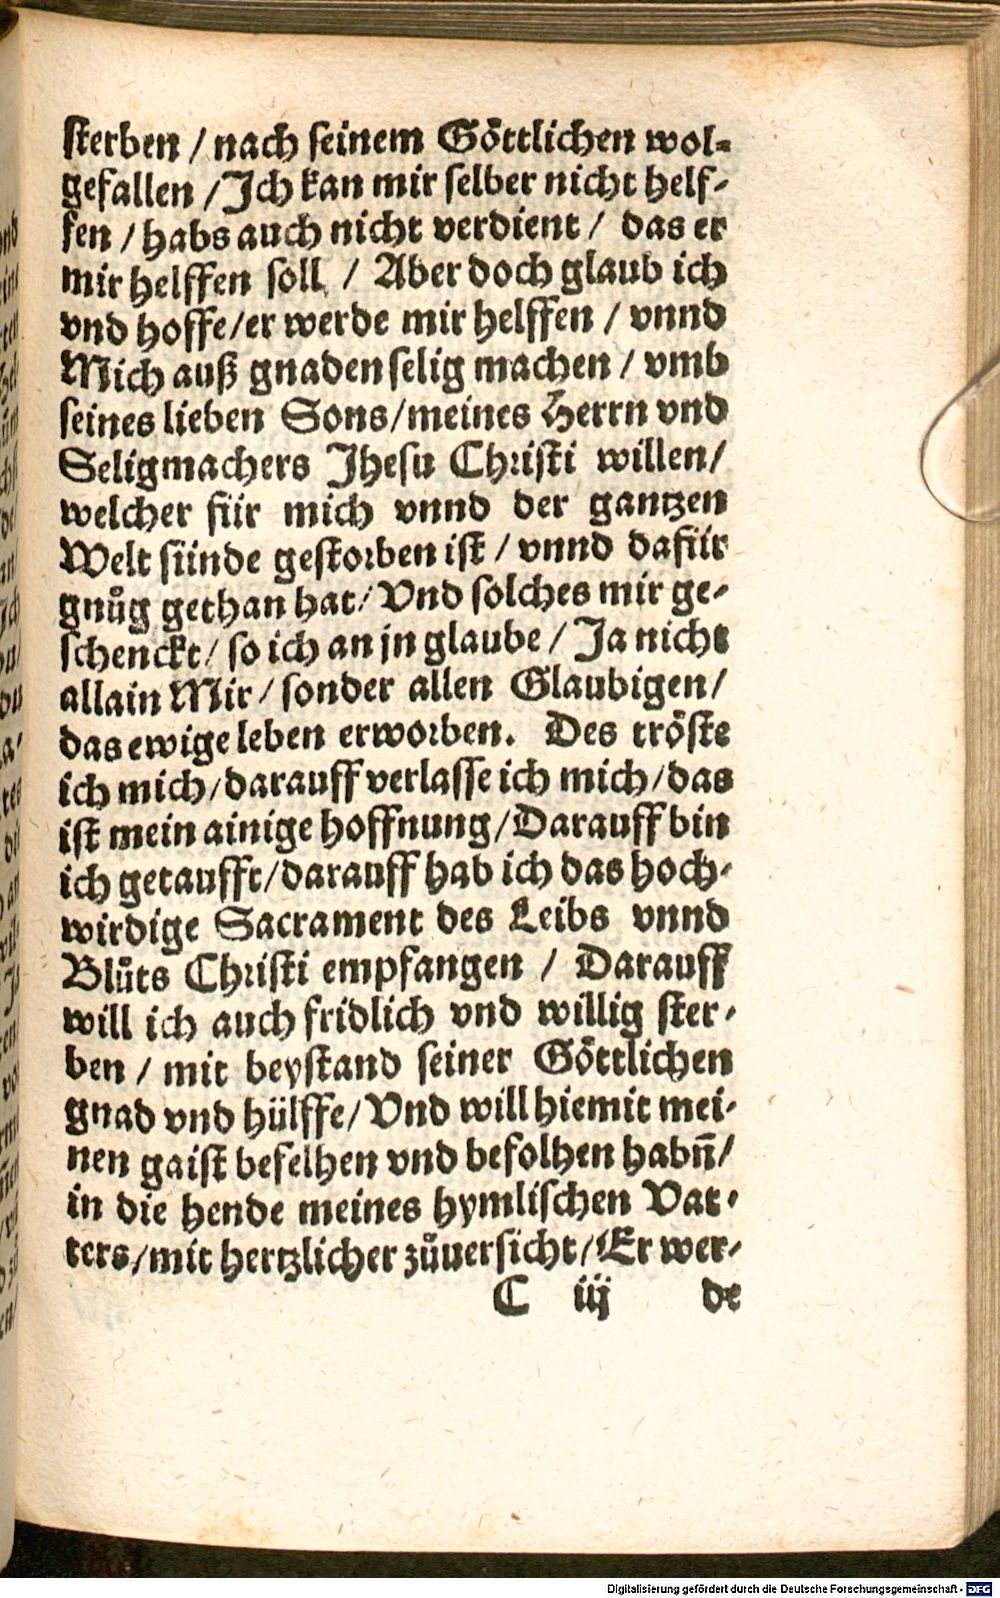 sterben / nach seinem Göttlichen wol-
gefallen / Jch kan mir selber nicht helf-
fen / habs auch nicht verdient / das er
mir helffen soll / Aber doch glaub ich
vnd hoffe / er werde mir helffen / vnnd
Mich auß gnaden selig machen / vmb
seines lieben Sons / meines Herrn vnd
Seligmachers Jhesu Christi willen /
welcher für mich vnnd der gantzen
Welt sünde gestorben ist / vnnd dafür
gnůg gethan hat / Vnd solches mir ge-
schenckt / so ich an jn glaube / Ja nicht
allain Mir / sonder allen Glaubigen /
das ewige leben erworben. Des tröste
ich mich / darauff verlasse ich mich / das
ist mein ainige hoffnung / Darauff bin
ich getaufft / darauff hab ich das hoch-
wirdige Sacrament des Leibs vnnd
Blůts Christi empfangen / Darauff
will ich auch fridlich vnd willig ster-
ben / mit beystand seiner Göttlichen
gnad vnd hülffe / Vnd will hiemit mei-
nen gaist befelhen vnd befolhen habn̄ /
in die hende meines hymlischen Vat-
ters / mit hertzlicher zůuersicht / Er wer-
C iij de
Digitalisierung gefördert durch die Deutsche Forschungsgemeinschaft - DFG